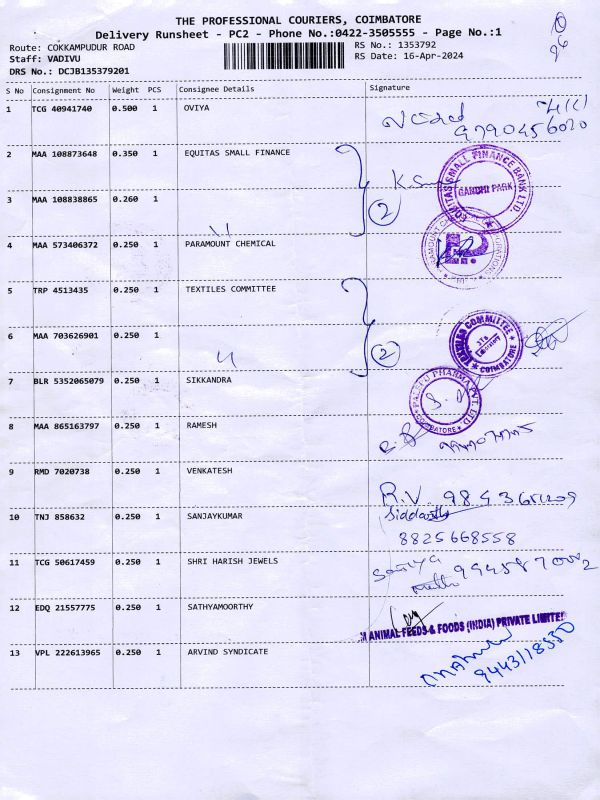 THE PROFESSIONAL COURIERS, COIMBATORE
Delivery Runsheet - PC2 - Phone No.:0422-3505555 - Page No.:1
Route: COKKAMPUDUR ROAD
RS No.: 1353792
Staff: VADIVU
RS Date: 16-Apr-2024
DRS No.: DCJB135379201
S No Consignment No Weight PCS Consignee Details Signature
1 TCG 40941740 0.500 1 OVIYA
9790456020
2 MAA 108873648 0.350 1 EQUITAS SMALL FINANCE
EQUITAS SMALL FINANCE BANK LTD.
GANDHI PARK
3 MAA 108838865 0.260 1
2
4 MAA 573406372 0.250 1 PARAMOUNT CHEMICAL
5 TRP 4513435 0.250 1 TEXTILES COMMITTEE
6 MAA 703626901 0.250 1
2
TEXTILES COMMITTEE
COIMBATORE
7 BLR 5352065079 0.250 1 SIKKANDRA
PHARMA PVT. LTD
COIMBATORE
8 MAA 865163797 0.250 1 RAMESH
9 RMD 7020738 0.250 1 VENKATESH
R.V.
10 TNJ 858632 0.250 1 SANJAYKUMAR
Siddarth
8825668558
11 TCG 50617459 0.250 1 SHRI HARISH JEWELS
12 EDQ 21557775 0.250 1 SATHYAMOORTHY
M ANIMAL FEEDS & FOODS (INDIA) PRIVATE LIMITED
13 VPL 222613965 0.250 1 ARVIND SYNDICATE
9443118530